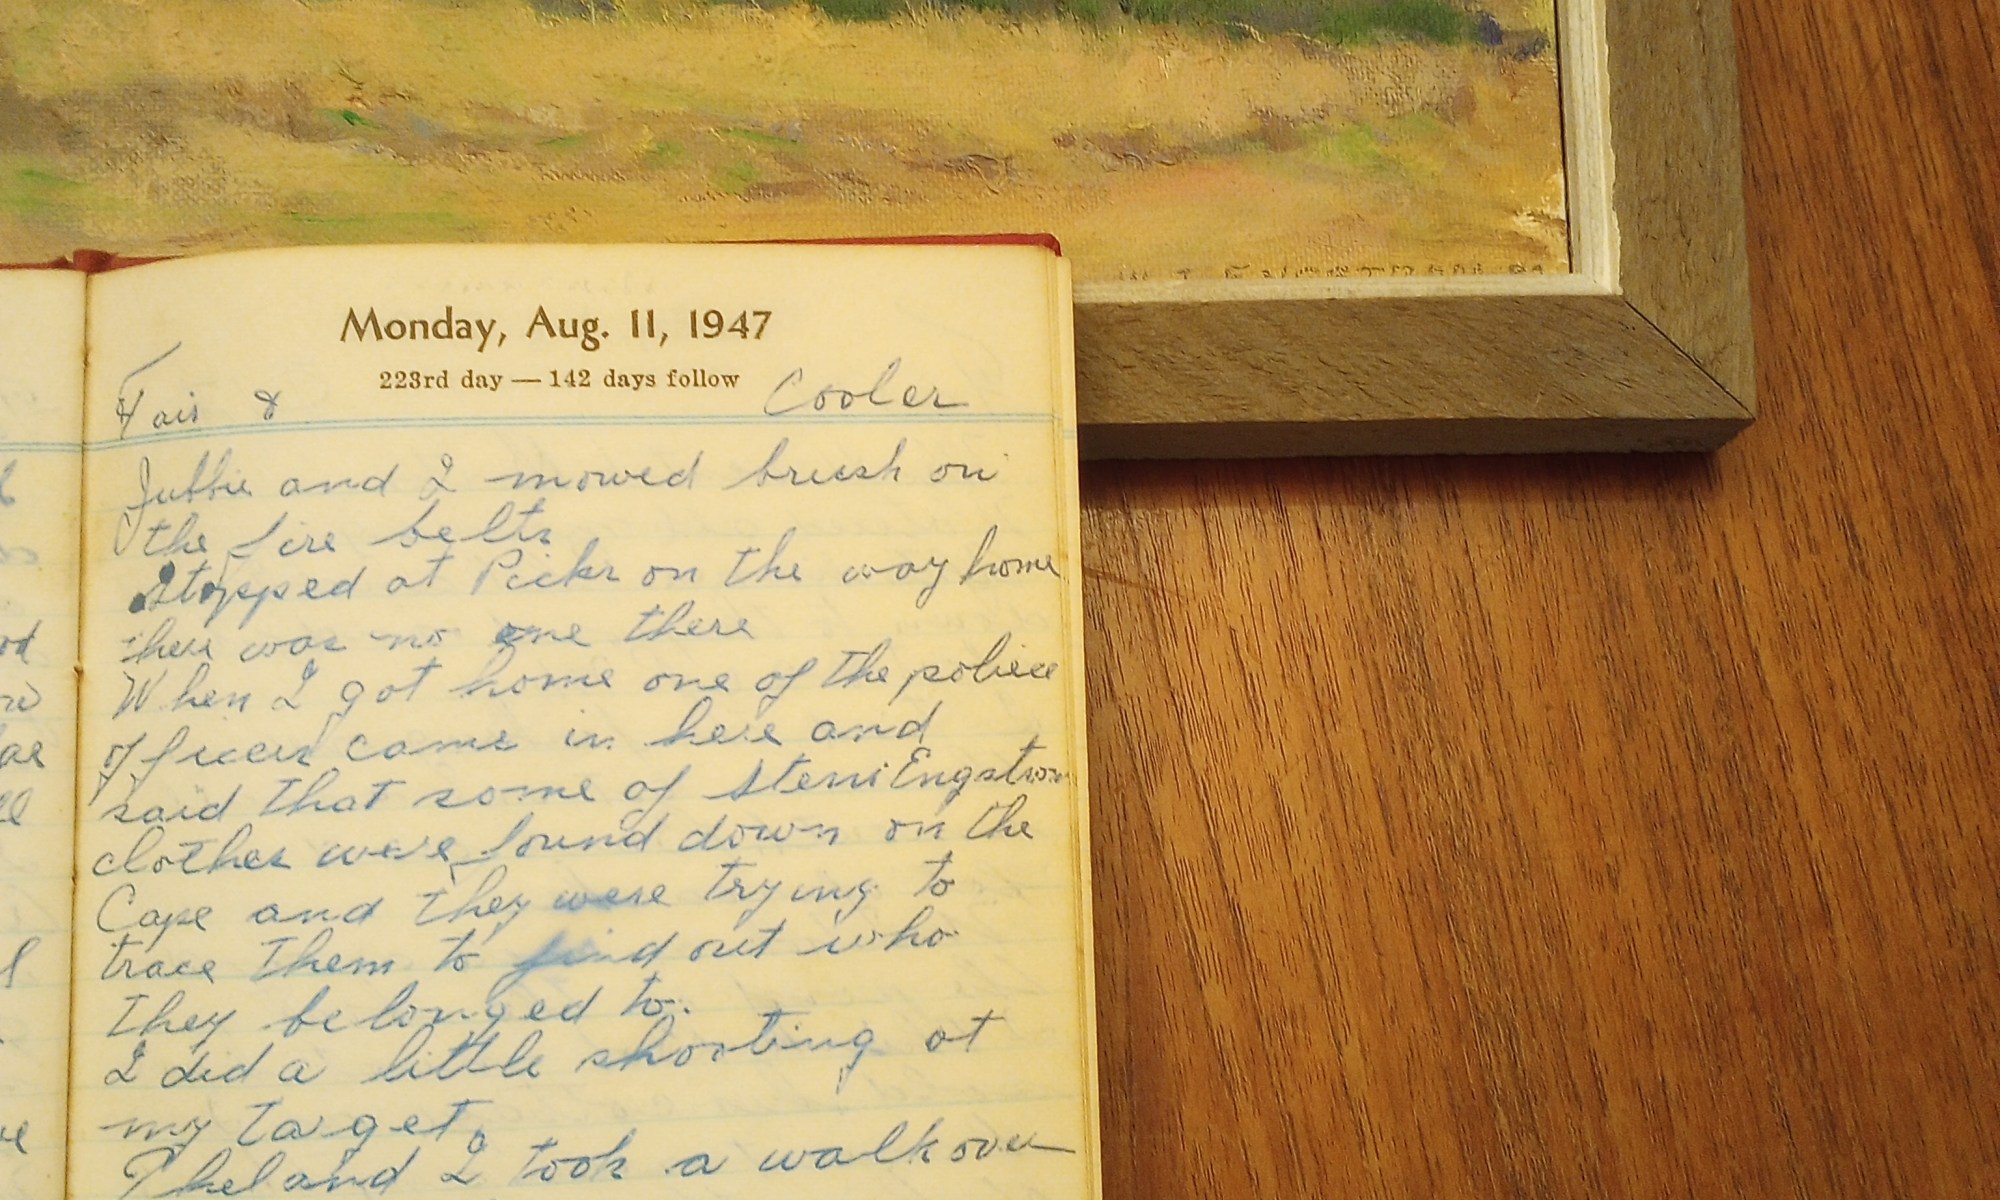 Monday, Aug. 11, 1947
223rd day — 142 days follow
Fair & Cooler
and I mowed brush on
the fire belts
Stopped at Picks on the way home
there was no one there
When I got home one of the police
officers came in here and
said that some of Engstrom
clothes were found down on the
Cape and they were trying to
trace them to find out who
they belonged to.
I did a little shooting at
my target
and I took a walk over